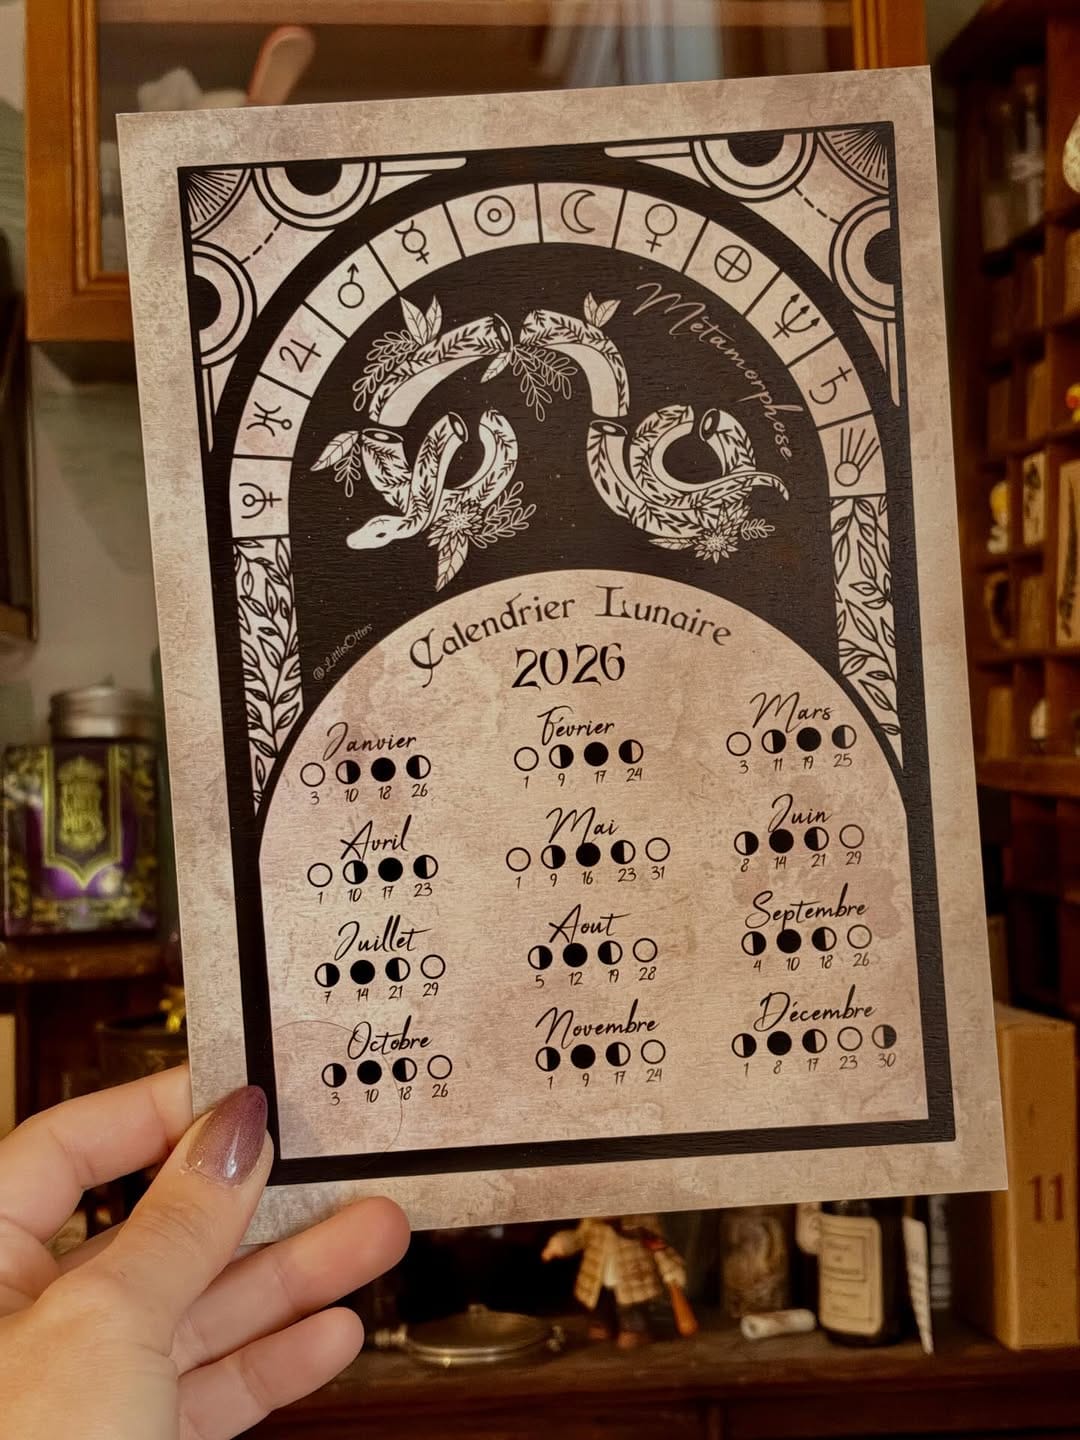 Métamorphose
@LittleOtters
Calendrier Lunaire
2026
Janvier
3 10 18 26
Février
1 9 17 24
Mars
3 11 19 25
Avril
1 10 17 23
Mai
1 9 16 23 31
Juin
8 14 21 29
Juillet
7 14 21 29
Aout
5 12 19 28
Septembre
4 10 18 26
Octobre
3 10 18 26
Novembre
1 9 17 24
Décembre
1 8 17 23 30
11